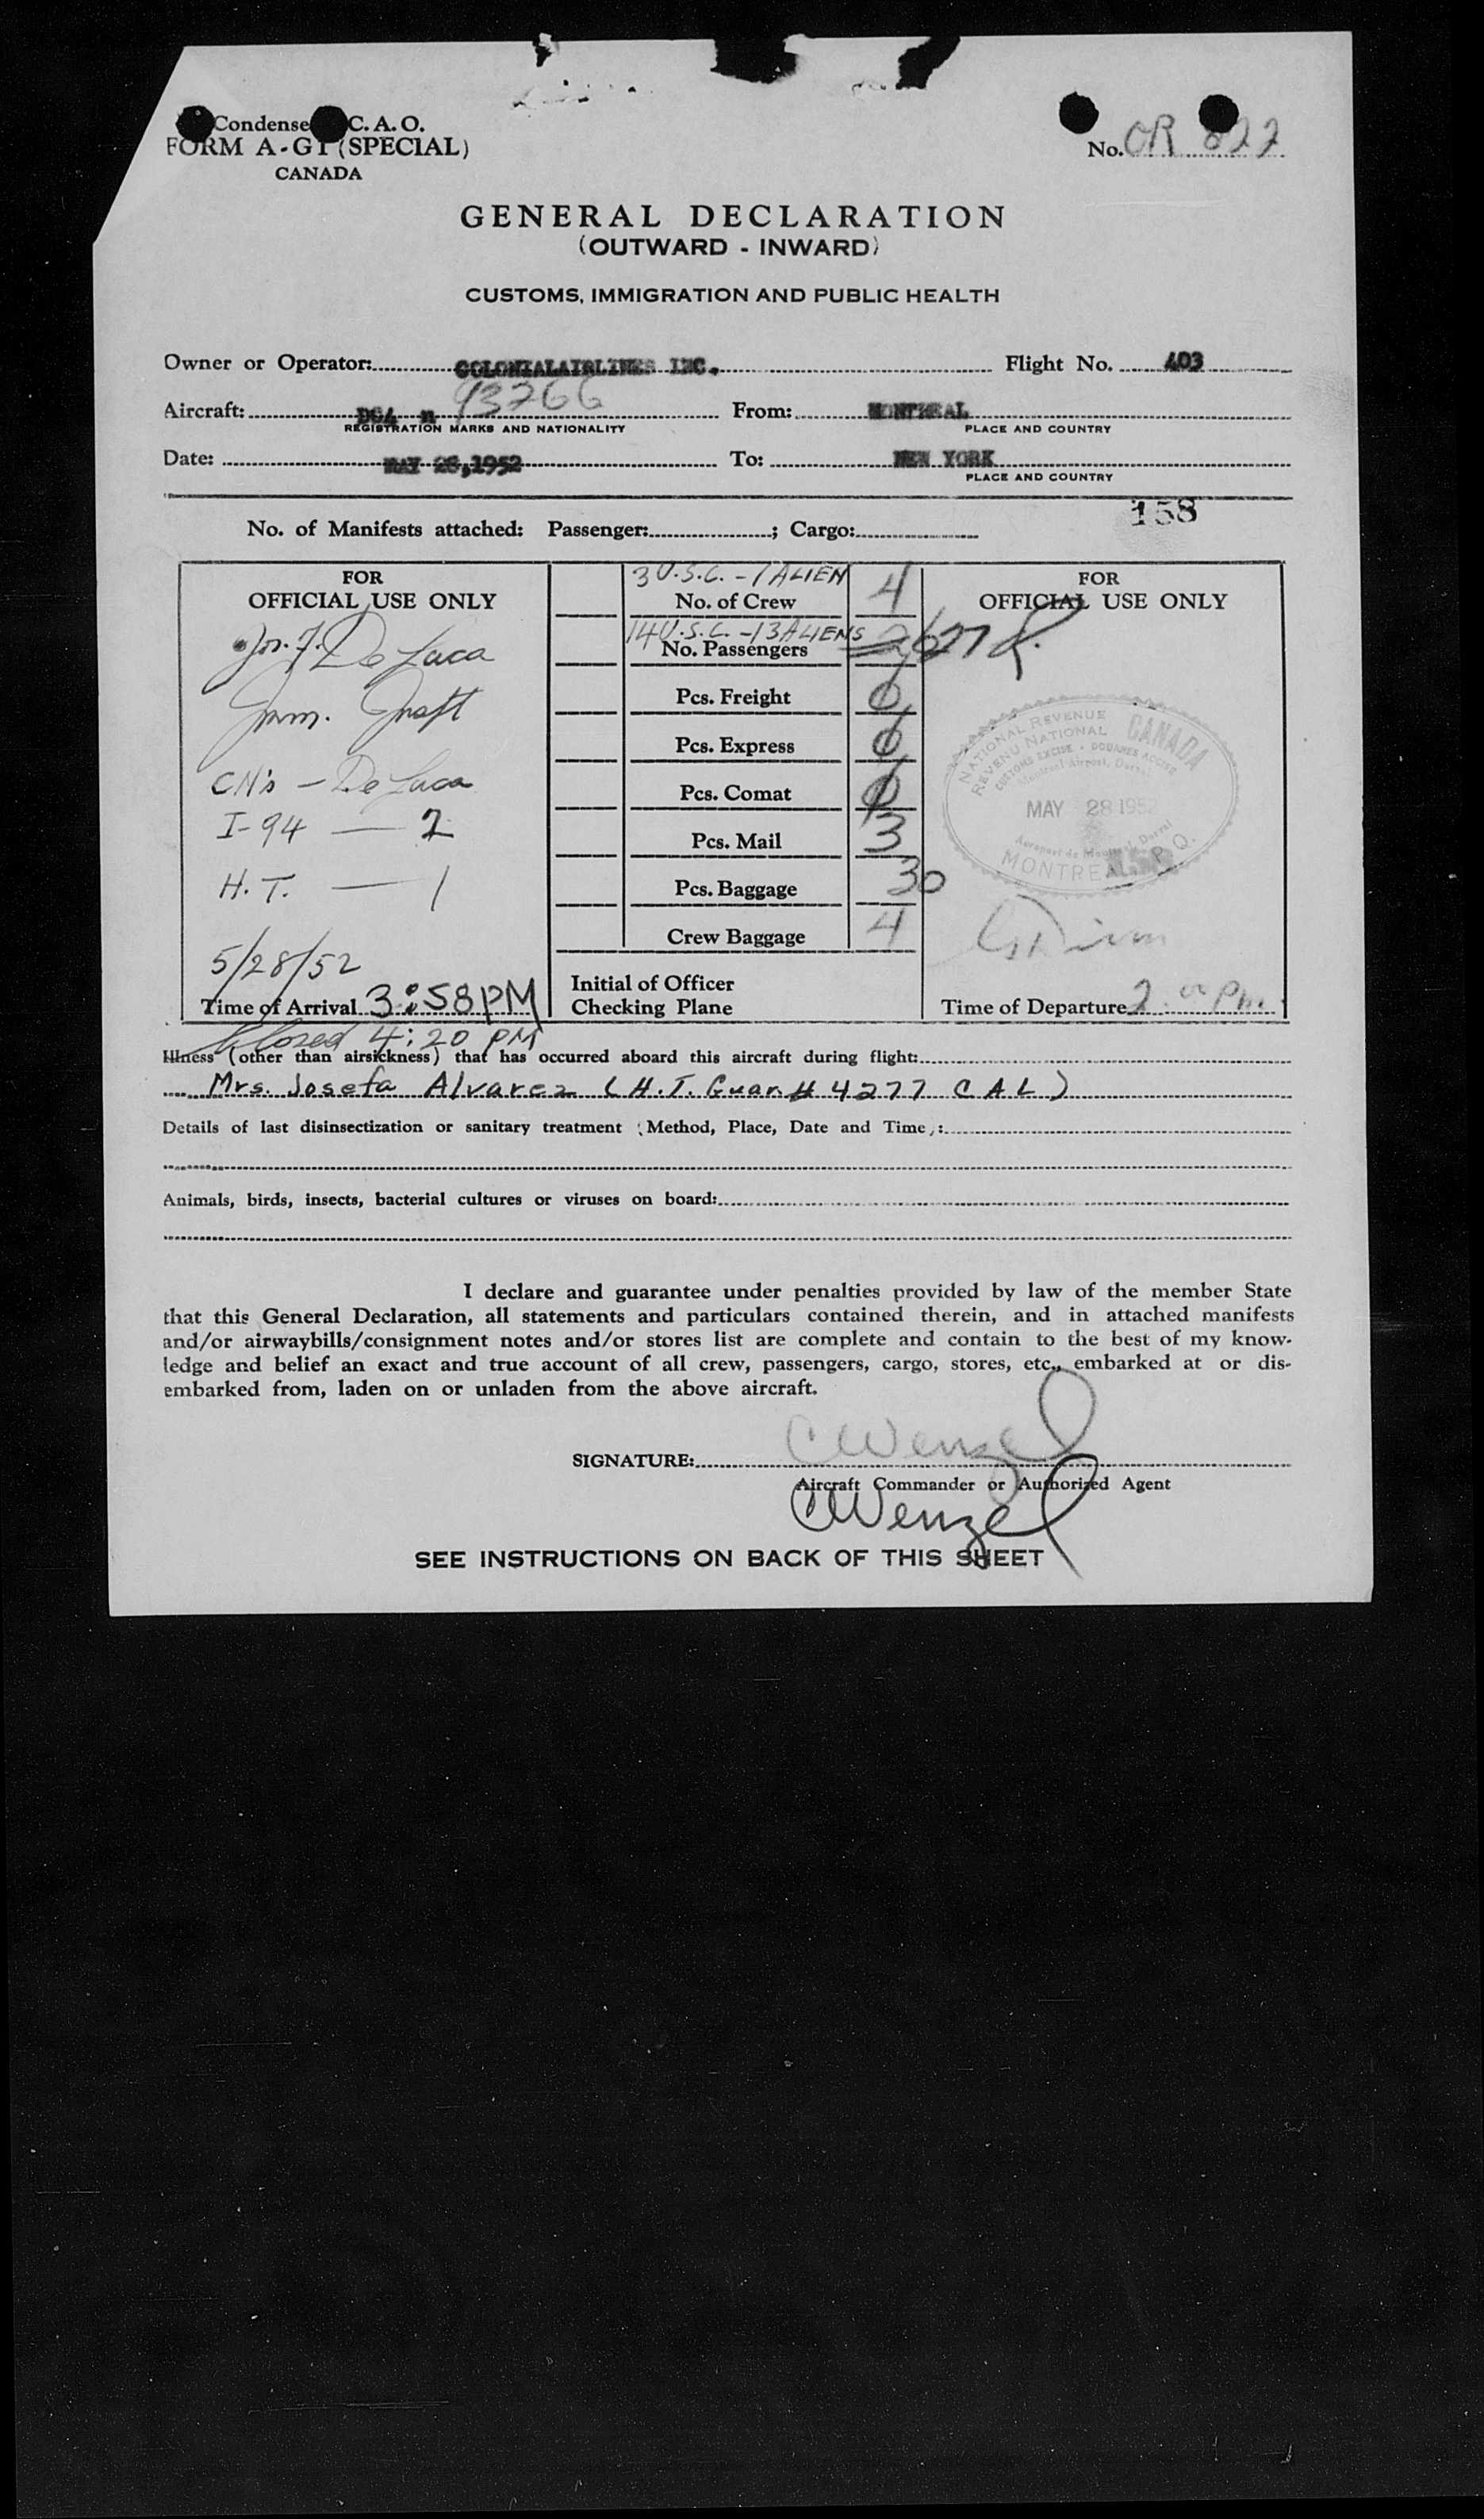 Condense C. A. O.
FORM A-G1 (SPECIAL)
CANADA
No. OR 822
GENERAL DECLARATION
(OUTWARD - INWARD)
CUSTOMS, IMMIGRATION AND PUBLIC HEALTH
Owner or Operator: COLONIALAIRLINES INC. Flight No. 403
Aircraft: DC4 n 93266 From: MONTREAL
REGISTRATION MARKS AND NATIONALITY PLACE AND COUNTRY
Date: MAY 28,1952 To: NEW YORK
PLACE AND COUNTRY
158
No. of Manifests attached: Passenger: ; Cargo:
FOR
OFFICIAL USE ONLY
Jos. F. De Luca
Imm.
CN's - De Luca
I-94 — 2
H. T. — 1
5/28/52
Time of Arrival 3:58 PM
Closed 4:20 PM
3 U.S.C. - 1 ALIEN
No. of Crew 4
14 U.S.C. - 13 ALIENS
No. Passengers 26 27
Pcs. Freight 0
Pcs. Express 0
Pcs. Comat 0
Pcs. Mail 3
Pcs. Baggage 30
Crew Baggage 4
Initial of Officer
Checking Plane
FOR
OFFICIAL USE ONLY
NATIONAL REVENUE
REVENU NATIONAL
CANADA
CUSTOMS EXCISE - DOUANES ACCISE
Montreal Airport, Dorval
MAY 28 1952
Aeroport de Montreal, Dorval
MONTREAL P. Q.
Time of Departure 2:00 Pm.
Illness (other than airsickness) that has occurred aboard this aircraft during flight:
Mrs. Josefa Alvarez (H.T. Guar. # 4277 CAL)
Details of last disinsectization or sanitary treatment (Method, Place, Date and Time):
Animals, birds, insects, bacterial cultures or viruses on board:
I declare and guarantee under penalties provided by law of the member State
that this General Declaration, all statements and particulars contained therein, and in attached manifests
and/or airwaybills/consignment notes and/or stores list are complete and contain to the best of my know-
ledge and belief an exact and true account of all crew, passengers, cargo, stores, etc., embarked at or dis-
embarked from, laden on or unladen from the above aircraft.
SIGNATURE: CWenzel
Aircraft Commander or Authorized Agent
CWenzel
SEE INSTRUCTIONS ON BACK OF THIS SHEET